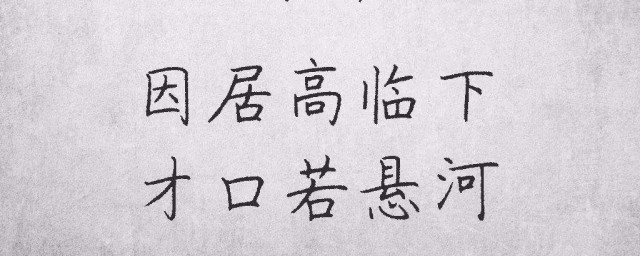 因居高临下
才口若悬河